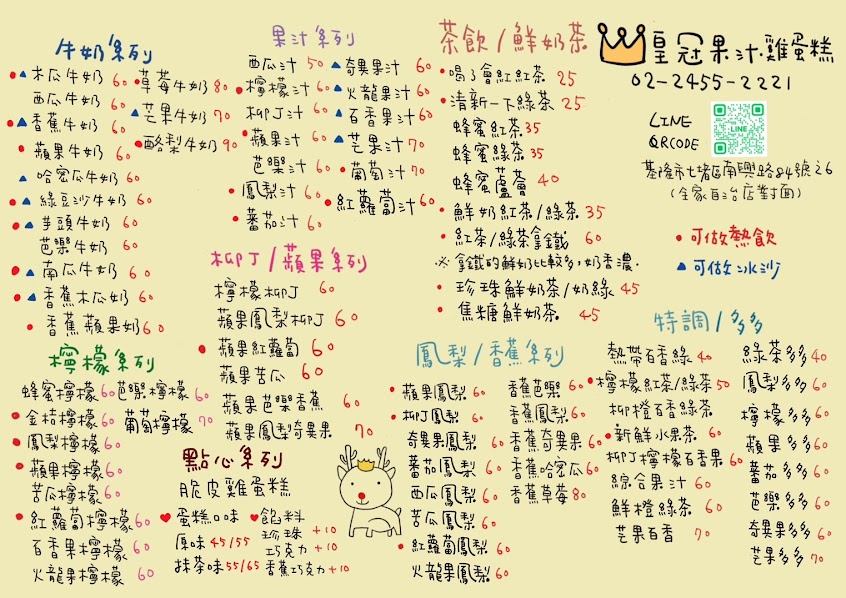 牛奶系列
木瓜牛奶 60
西瓜牛奶 60
香蕉牛奶 60
蘋果牛奶 60
哈密瓜牛奶 60
綠豆沙牛奶 60
芋頭牛奶 60
芭樂牛奶 60
南瓜牛奶 60
香蕉木瓜奶 60
香蕉蘋果奶 60
草莓牛奶 80
芒果牛奶 70
酪梨牛奶 90
果汁系列
西瓜汁 50
檸檬汁 60
柳丁汁 60
蘋果汁 60
芭樂汁 60
鳳梨汁 60
蕃茄汁 60
奇異果汁 60
火龍果汁 60
百香果汁 60
芒果汁 70
葡萄汁 70
紅蘿蔔汁 60
茶飲/鮮奶茶
喝了會紅紅茶 25
清新一下綠茶 25
蜂蜜紅茶 35
蜂蜜綠茶 35
蜂蜜蘆薈 40
鮮奶紅茶/綠茶 35
紅茶/綠茶拿鐵 60
※拿鐵的鮮奶比較多,奶香濃.
珍珠鮮奶茶/奶綠 45
焦糖鮮奶茶 45
皇冠果汁.雞蛋糕
02-2455-2221
LINE
QRCODE
LINE
基隆市七堵區南興路84號之6
(全家自治店對面)
可做熱飲
可做冰沙
檸檬系列
蜂蜜檸檬 60
金桔檸檬 60
鳳梨檸檬 60
蘋果檸檬 60
苦瓜檸檬 60
紅蘿蔔檸檬 60
百香果檸檬 60
火龍果檸檬 60
芭樂檸檬 60
葡萄檸檬 70
柳丁/蘋果系列
檸檬柳丁 60
蘋果鳳梨柳丁 60
蘋果紅蘿蔔 60
蘋果苦瓜 60
蘋果芭樂香蕉 60
蘋果鳳梨奇異果 70
點心系列
脆皮雞蛋糕
蛋糕口味
原味 45/55
抹茶味 55/65
餡料
珍珠 +10
巧克力 +10
香蕉巧克力 +10
鳳梨/香蕉系列
蘋果鳳梨 60
柳丁鳳梨 60
奇異果鳳梨 60
蕃茄鳳梨 60
西瓜鳳梨 60
苦瓜鳳梨 60
紅蘿蔔鳳梨 60
火龍果鳳梨 60
香蕉芭樂 60
香蕉鳳梨 60
香蕉奇異果 60
香蕉哈密瓜 60
香蕉草莓 80
特調/多多
熱帶百香綠 40
檸檬紅茶/綠茶 50
柳橙百香綠茶
新鮮水果茶 60
柳丁檸檬百香果 60
綜合果汁 60
鮮橙綠茶 60
芒果百香 70
綠茶多多 40
鳳梨多多 60
檸檬多多 60
蘋果多多 60
蕃茄多多 60
芭樂多多 60
奇異果多多 60
芒果多多 70